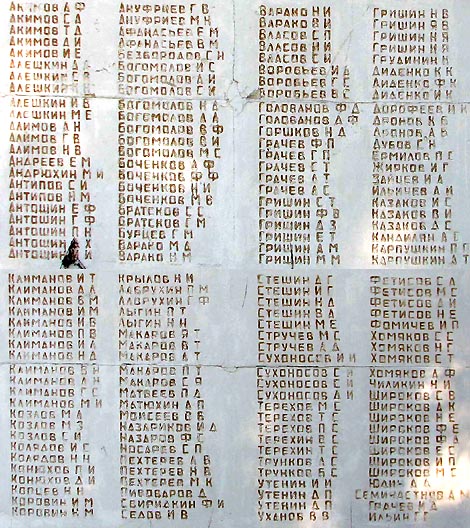 АКИМОВ А Ф
АКИМОВ Т А
АКИМОВ Т Д
АКИМОВ Д И
АКИМОВ И Е
АЛЕШКИН Д А
АЛЕШКИН
АЛЕШКИН
АЛЕШКИН И В
АЛЕШКИН М Е
АЛИМОВ А Н
АЛИМОВ Г В
АЛИМОВ Н В
АНДРЕЕВ Е М
АНДРЮХИН М И
АНТИПОВ С И
АНТИПОВ Я М
АНТОШИН Е Ф
АНТОШИН Г Ф
АНТОШИН П Н
АНТОШИН
АНТОШИН
АНУФРИЕВ Г В
АНУФРИЕВ М Н
АФАНАСЬЕВ Е М
АФАНАСЬЕВ Г М
БЕЗБОРОДОВ С Н
БОГОМОЛОВ И С
БОГОМОЛОВ Д А
БОГОМОЛОВ А И
БОГОМОЛОВ Н А
БОГОМОЛОВ А А
БОГОМОЛОВ В Ф
БОГОМОЛОВ В И
БОГОМОЛОВ М С
БОЧЕНКОВ А Ф
БОЧЕНКОВ Ф Ф
БОЧЕНКОВ Н И
БОЧЕНКОВ М И
БРАТСКОВ С С
БРАТСКОВ Г М
БУРЦЕВ Г М
ВАРАКО М Д
ВАРАКО Н М
ВАРАКО Н И
ВАРАКО В И
ВЛАСОВ С П
ВЛАСОВ И И
ВОРОБЬЕВ И А
ВОРОБЬЕВ Г С
ВОРОБЬЕВ В С
ГОЛОВАНОВ Ф Д
ГОЛОВАНОВ А Ф
ГОРШКОВ Н Д
ГРАЧЕВ Ф П
ГРАЧЕВ Г П
ГРАЧЕВ С Т
ГРАЧЕВ С Т
ГРАЧЕВ А С
ГРИШИН С Т
ГРИШИН Ф В
ГРИШИН Д З
ГРИШИН Е Т
ГРИШИН Я М
ГРИШИН М М
ГРИШИН Н В
ГРИШИН Я В
ГРИШИН К Я
ГРИШИН Н Я
ГРУДИНИН Н
ДИДЕНКО К К
ДИДЕНКО Ф К
ДИДЕНКО И К
ДОРОФЕЕВ И И
ДРОНОВ Н А
ДРОНОВ А В
ДУБОВ С Н
ЕРМИЛОВ П С
ЖИРКОВ И Г
ЗАЙЦЕВ И А
ИЛЬИЧЕВ А И
КАЗАКОВ И С
КАЗАКОВ В И
КАЗАКОВ Д С
КАНДАЛИН А Е
КАРПУШКИН Г С
КАРПУШКИН А Т
КЛИМАНОВ И Т
КЛИМАНОВ А А
КЛИМАНОВ В М
КЛИМАНОВ И В
КЛИМАНОВ П В
КЛИМАНОВ И А
КЛИМАНОВ Н Д
КЛИМАНОВ В Н
КЛИМАНОВ А Н
КЛИМАНОВ Г С
КЛИМАНОВ М И
КОЗЛОВ М А
КОЗЛОВ М З
КОЗЛОВ С И
КОЛДАЕВ И С
КОЛДАЕВ Н Н
КОНЮХОВ П И
КОНЮХОВ Д И
КОРЦЕВ Н Н
КОРОВИН И М
КОРОВИН К М
КРЫЛОВ Н И
ЛАВРУХИН П М
ЛАВРУХИН Г Ф
ЛЫГИН П Т
ЛЫГИН Н Н
МАКАРОВ Я Т
МАКАРОВ В Т
МАКАРОВ П Т
МАКАРОВ С Я
МАТВЕЕВ П Д
МАТЮХИН А П
МОИСЕЕВ С В
НАЗАРИКОВ И Д
НАЗАРОВ Ф С
НОСАРЕВ С П
ПЕХТЕРЕВ А В
ПЕХТЕРЕВ Н В
ПЕХТЕРЕВ М К
ПИВОВАРОВ Д
СВИРИДКИН Ф И
СЕДОВ И В
СТЕШИН Д Г
СТЕШИН И Г
СТЕШИН Г М
СТЕШИН В Т
СТЕШИН М Е
СТРУЧЕВ М С
СТРУЧЕВ А Д
СУХОНОСОВ И И
СУХОНОСОВ С И
СУХОНОСОВ Д И
ТЕРЕХОВ М С
ТЕРЕХОВ Г С
ТЕРЕХИН В С
ТЕРЕХИН Т С
ТРУНКОВ А С
ТРУНКОВ Б С
УТЕНИН И И
УТЕНИН Д П
УХАНОВ В В
ФЕТИСОВ С А
ФЕТИСОВ М С
ФЕТИСОВ Д И
ФЕТИСОВ Н Е
ФОМИЧЕВ И П
ХОМЯКОВ С С
ХОМЯКОВ А Ф
ХОМЯКОВ С Т
ЧИЛИКИН Н И
ШИРОКОВ С В
ШИРОКОВ А К
ШИРОКОВ Ф Е
ШИРОКОВ Ф А
ШИРОКОВ И П
ШИРОКОВ М С
ЮДИН Д А
СЕМИЧАСТНОВ М А
ГРАЧЕВ И Д
ИЛЬИН Г Г